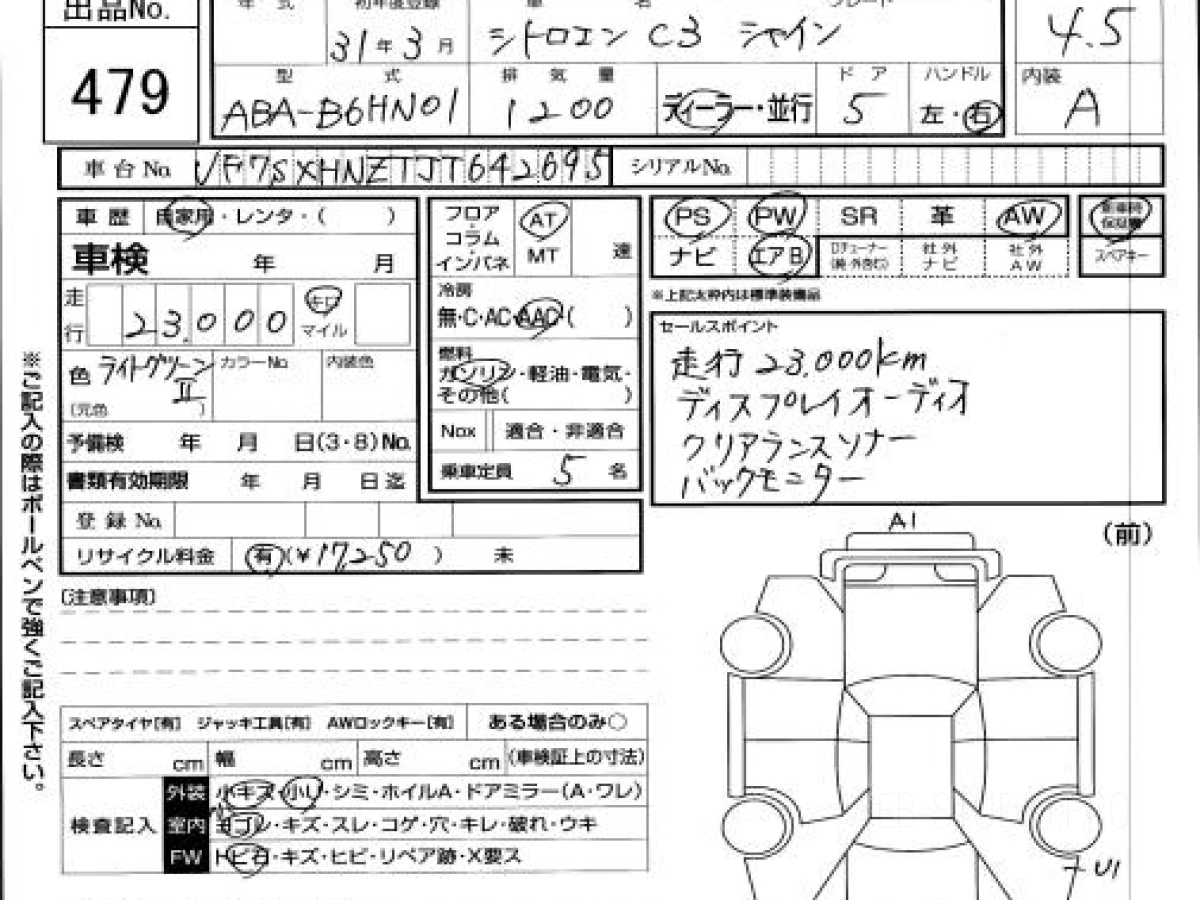 出品No.
年式 初年度登録 車名 グレード
479
31年3月 シトロエン C3 シャイン 4.5
型式 排気量 ドア ハンドル 内装
ABA-B6HN01 1200 ディーラー・並行 5 左・右 A
車台No. VF7SXHNZTJT642695 シリアルNo.
車歴 自家用・レンタ・( )
車検 年 月
走行 23.000 キロ マイル
色 ライトグリーンⅡ カラーNo. 内装色
(元色 )
予備検 年 月 日(3・8)No.
書類有効期限 年 月 日迄
登録No.
リサイクル料金 有(¥17,250 ) 未
フロア・コラム・インパネ AT MT 速
冷房
無・C・AC・AAC( )
燃料
ガソリン・軽油・電気・
その他( )
Nox 適合・非適合
乗車定員 5 名
PS PW SR 革 AW 新車時保証書
ナビ エアB 社外ナビ 社外AW スペアキー
※上記太枠内は標準装備品
セールスポイント
走行 23,000km
ディスプレイオーディオ
クリアランスソナー
バックモニター
※ご記入の際はボールペンで強くご記入下さい。
[注意事項]
A1
(前)
スペアタイヤ[有] ジャッキ工具[有] AWロックキー[有] ある場合のみ○
長さ cm 幅 cm 高さ cm (車検証上の寸法)
検査記入
外装 小キズ・小U・シミ・ホイルA・ドアミラー(A・ワレ)
室内 ヨゴレ・キズ・スレ・コゲ・穴・キレ・破れ・ウキ
FW トビ石・キズ・ヒビ・リペア跡・X要ス
U1